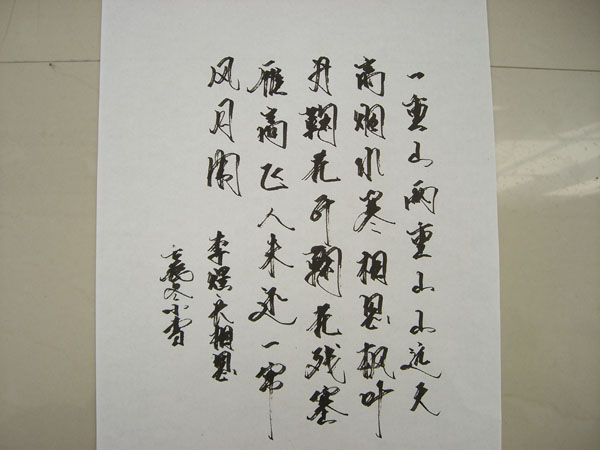 一重山两重山山远天
高烟水寒相思枫叶
丹鞠花开鞠花残塞
雁高飞人未还一帘
风月闲
李煜长相思
冬小雪